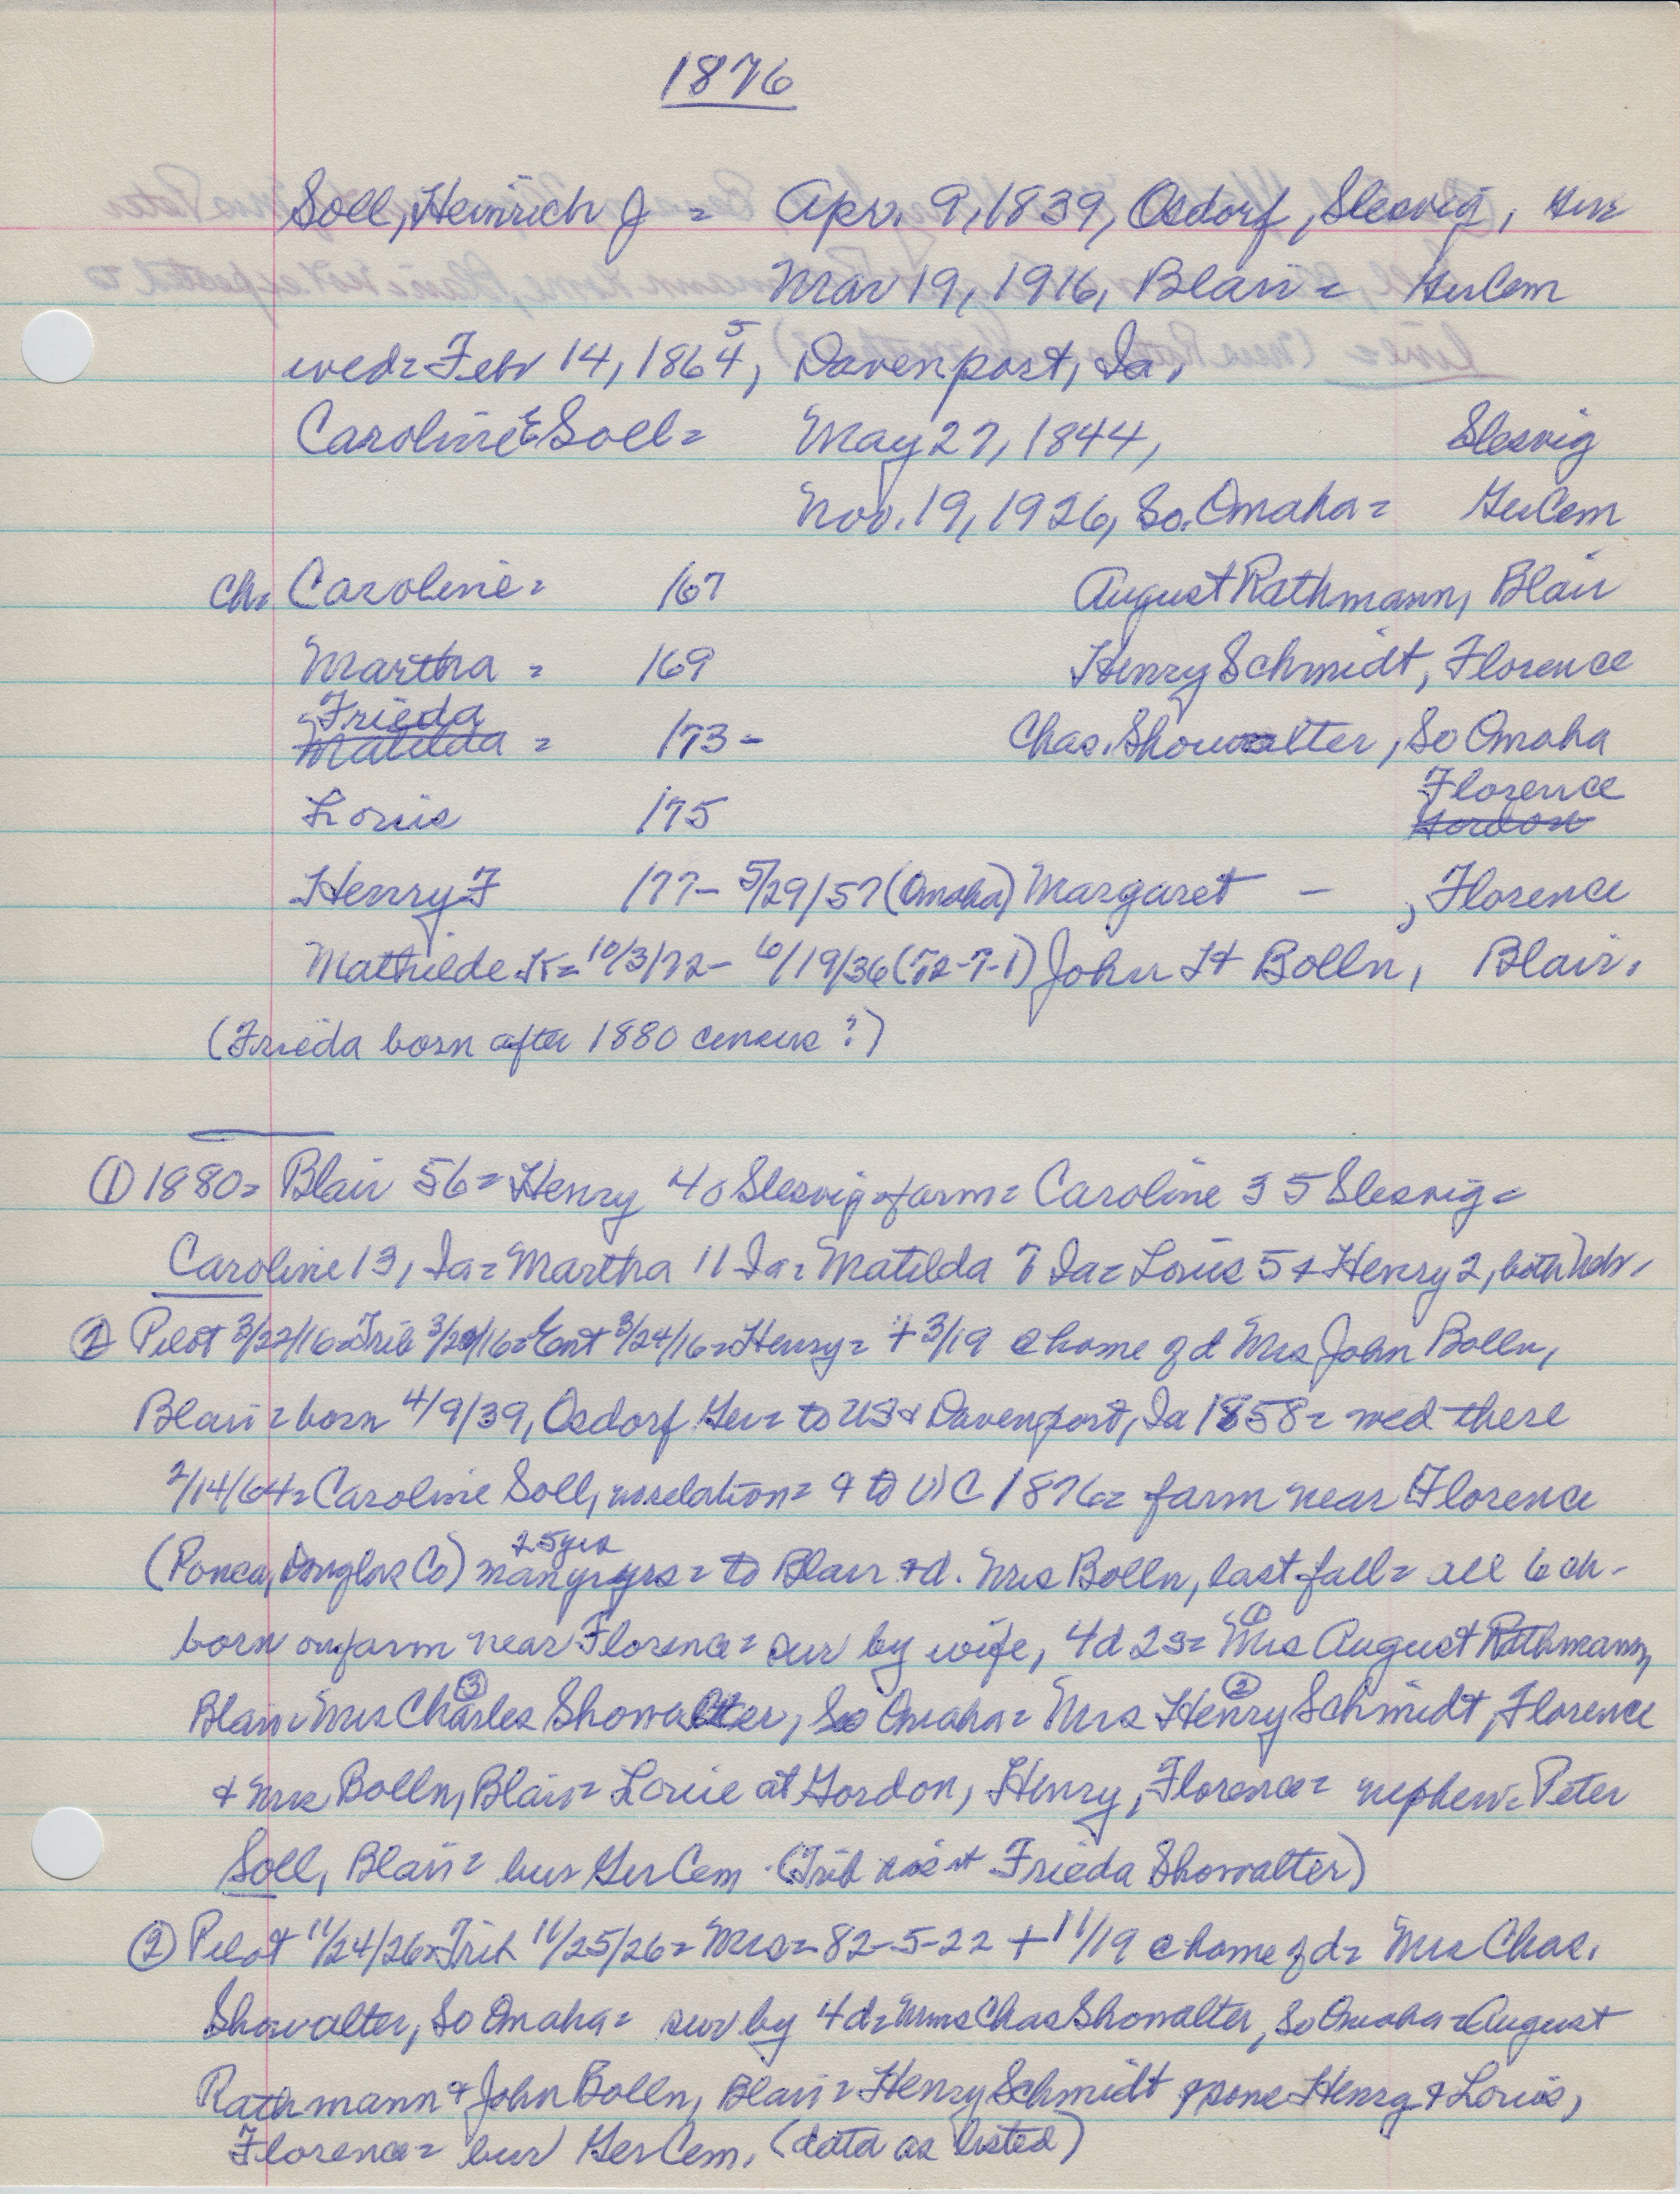 1876
Soll, Heinrich J = Apr. 9, 1839, Osdorf, Slesvig, Ger
Mar 19, 1916, Blair = GerCem
wed = Febr 14, 1864, 5 Davenport, Ia,
Caroline E Soll = May 27, 1844, Slesvig
Nov. 19, 1926, So. Omaha = GerCem
ch. Caroline = 167 August Rathmann, Blair
Martha = 169 Henry Schmidt, Florence
Frieda
Matilda = 173 - Chas. Showalter, So Omaha
Florence
Louis 175 Gordon
Henry F 177 - 5/29/57 (Omaha) Margaret - , Florence
Mathilde K = 10/3/72 - 6/19/36 (72-7-1) John H Bolln, Blair.
(Frieda born after 1880 census?)
① 1880 = Blair 56 = Henry 40 Slesvig = farm = Caroline 35 Slesvig =
Caroline 13, Ia = Martha 11 Ia = Matilda 7 Ia = Louis 5 & Henry 2, both Nebr.
② Pilot 3/22/16 = Trib 3/2/16 = Ent 3/24/16 = Henry = + 3/19 @ home of d Mrs John Bolln,
Blair = born 4/9/39, Osdorf Ger = to US & Davenport, Ia 1858 = wed there
2/14/64 = Caroline Soll, no relation = & to WC 1876 = farm near Florence
25 yrs
(Ponca, Douglas Co) many yrs = to Blair & d. Mrs Bolln, last fall = all 6 ch -
born on farm near Florence = sur by wife, 4d 2s = ① Mrs August Rathmann,
Blair = Mrs ③ Charles Showalter, So Omaha = Mrs ② Henry Schmidt, Florence
& Mrs Bolln, Blair = Louie at Gordon, Henry, Florence = nephew = Peter
Soll, Blair = bur Ger Cem. (Trib Frieda Showalter)
② Pilot 11/24/26 = Trib 11/25/26 = Mrs = 82-5-22 + 11/19 @ home of d = Mrs Chas.
Showalter, So Omaha = sur by 4d = Mmes Chas Showalter, So Omaha = August
Rathmann & John Bolln, Blair = Henry Schmidt & sons Henry & Louis,
Florence = bur Ger Cem. (data as listed)